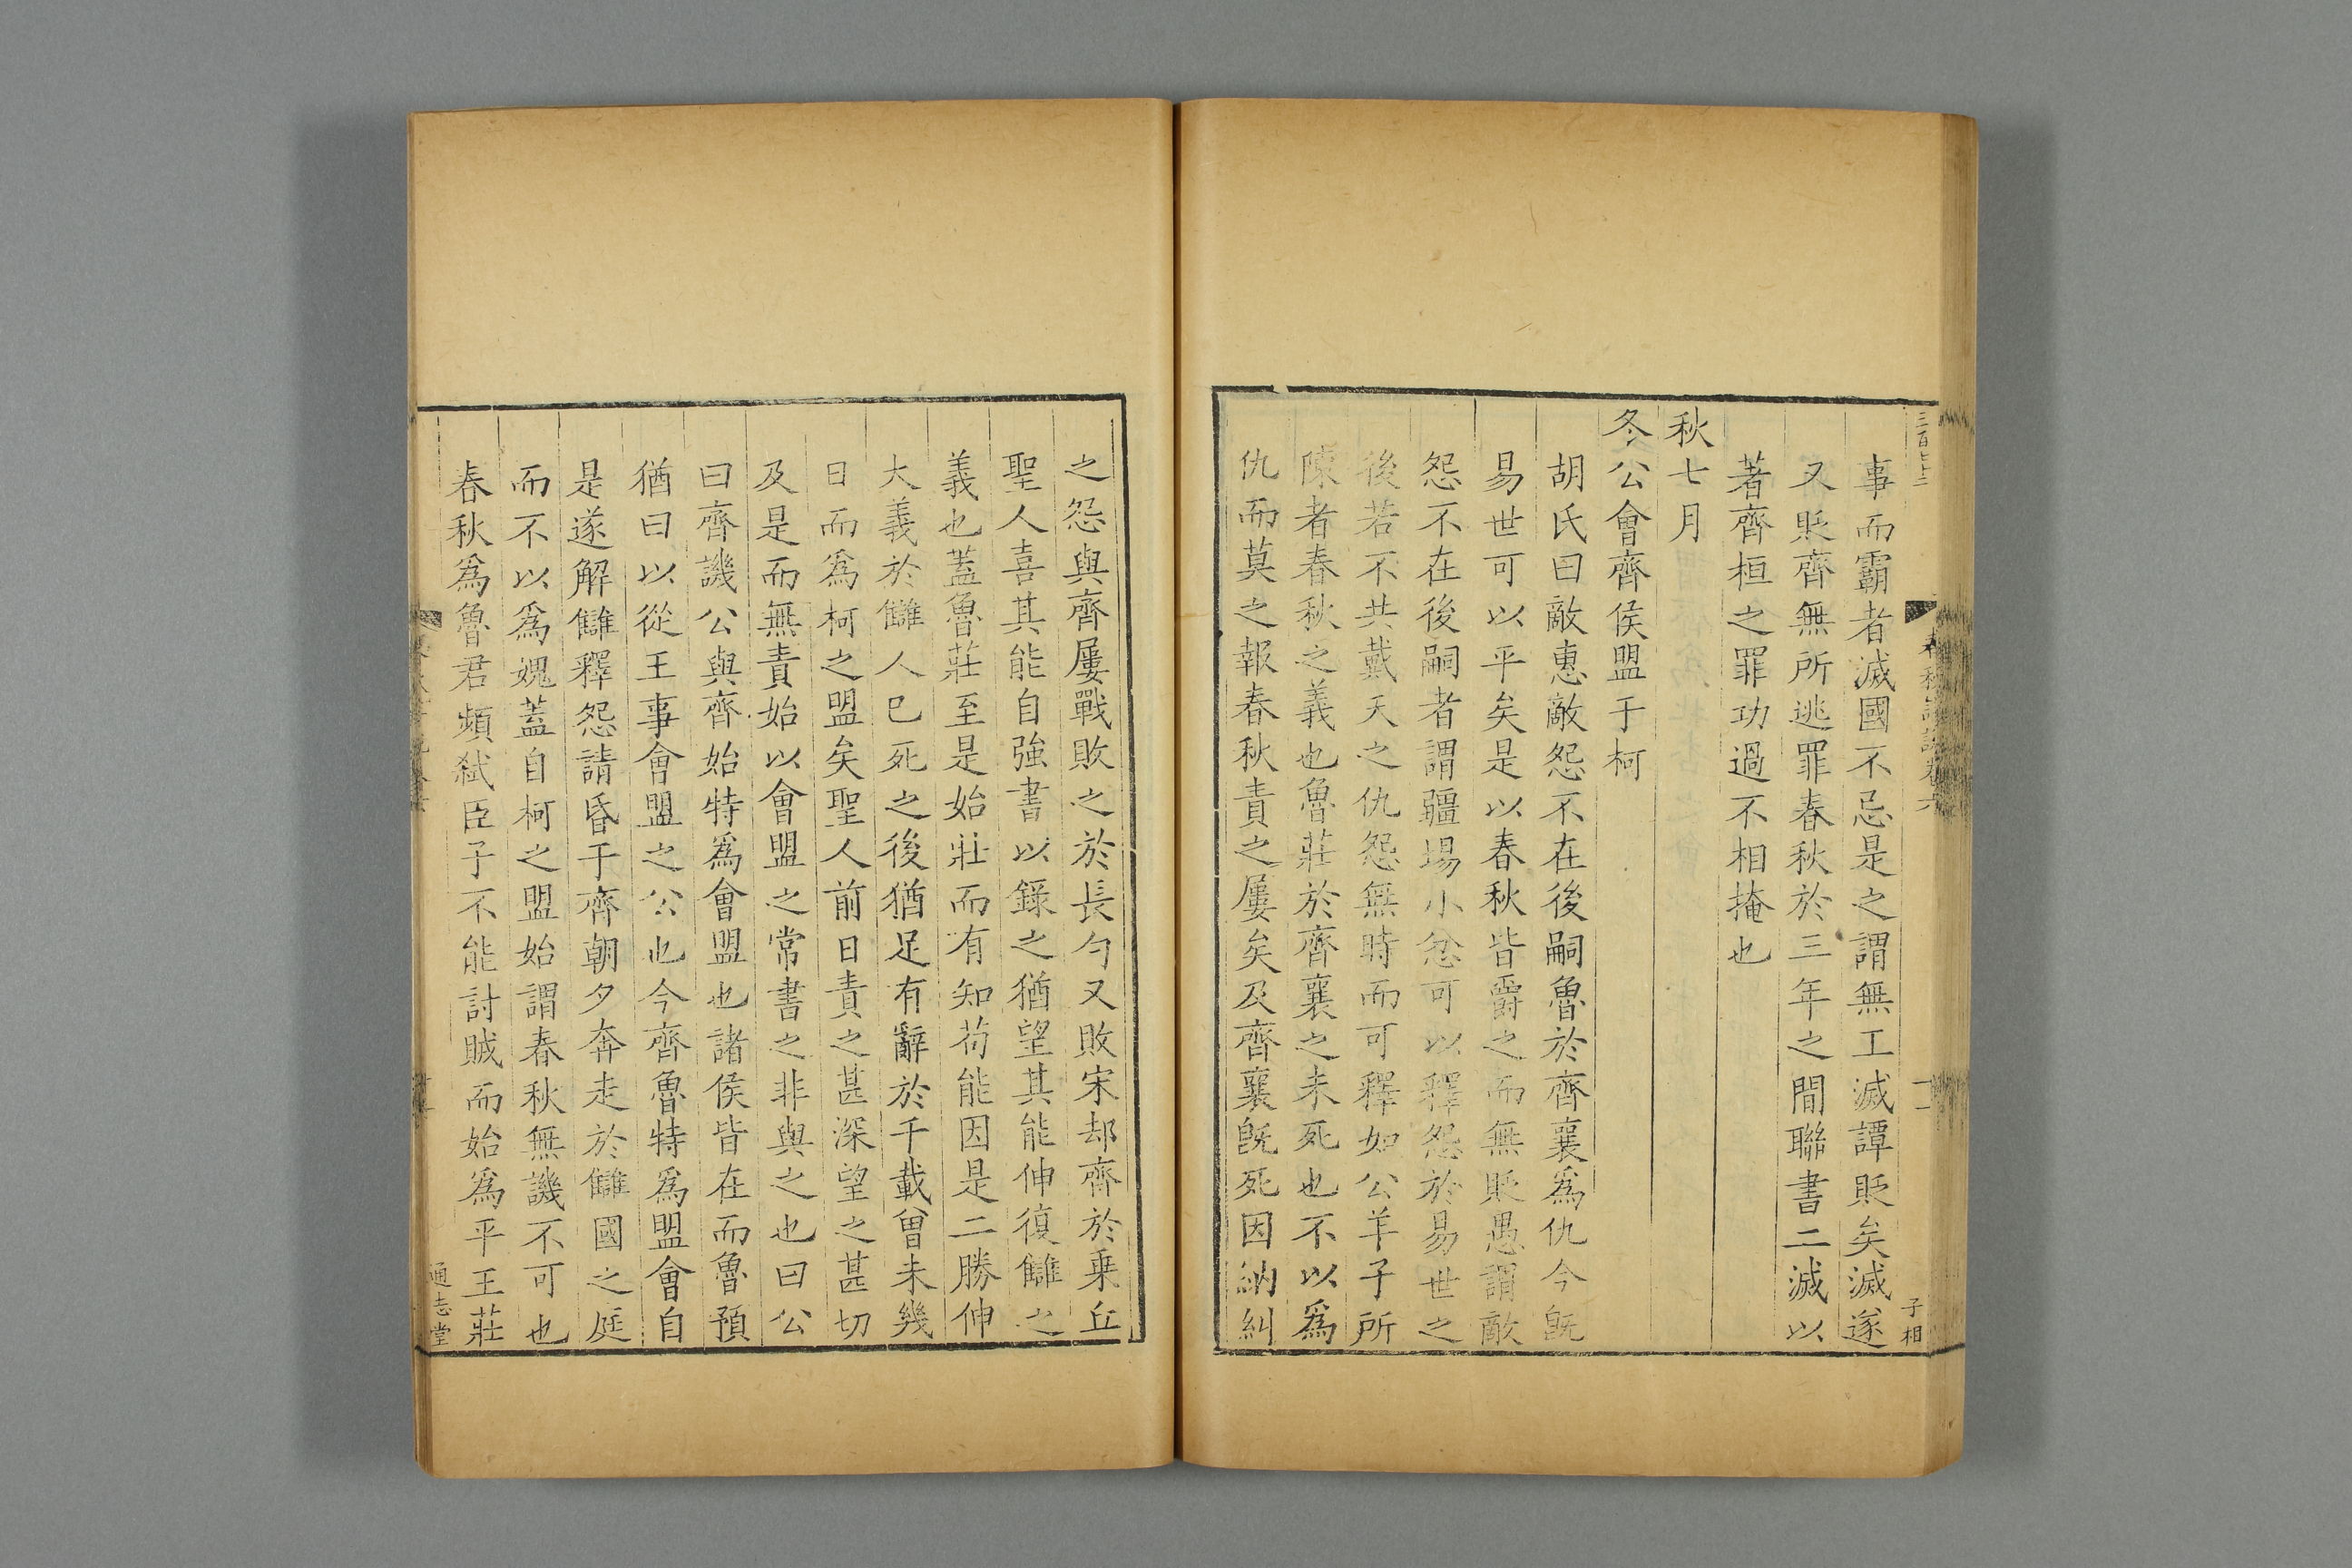 三百七十三
事而霸者滅國不忌是之謂無王滅譚貶矣滅遂
又貶齊無所逃罪春秋於三年之間聯書二滅以
著齊桓之罪功過不相掩也
秋七月
冬公會齊侯盟于柯
胡氏曰敵惠敵怨不在後嗣魯於齊襄爲仇今旣
易世可以平矣是以春秋皆爵之而無貶愚謂敵
怨不在後嗣者謂疆場小忿可以釋怨於易世之
後若不共戴天之仇怨無時而可釋如公羊子所
陳者春秋之義也魯莊於齊襄之未死也不以爲
仇而莫之報春秋責之屢矣及齊襄旣死因納糾
子相
之怨與齊屢戰敗之於長勺又敗宋却齊於乗丘
聖人喜其能自強書以錄之猶望其能伸復讎之
義也蓋魯莊至是始壯而有知苟能因是二勝伸
大義於讎人已死之後猶足有辭於千載曾未幾
日而爲柯之盟矣聖人前日責之甚深望之甚切
及是而無責始以會盟之常書之非與之也曰公
曰齊譏公與齊始特爲會盟也諸侯皆在而魯預
猶曰以從王事會盟之公也今齊魯特爲盟會自
是遂解讎釋怨請昏于齊朝夕奔走於讎國之庭
而不以爲媿蓋自柯之盟始謂春秋無譏不可也
春秋爲魯君頻弑臣子不能討賊而始爲平王莊
通志堂